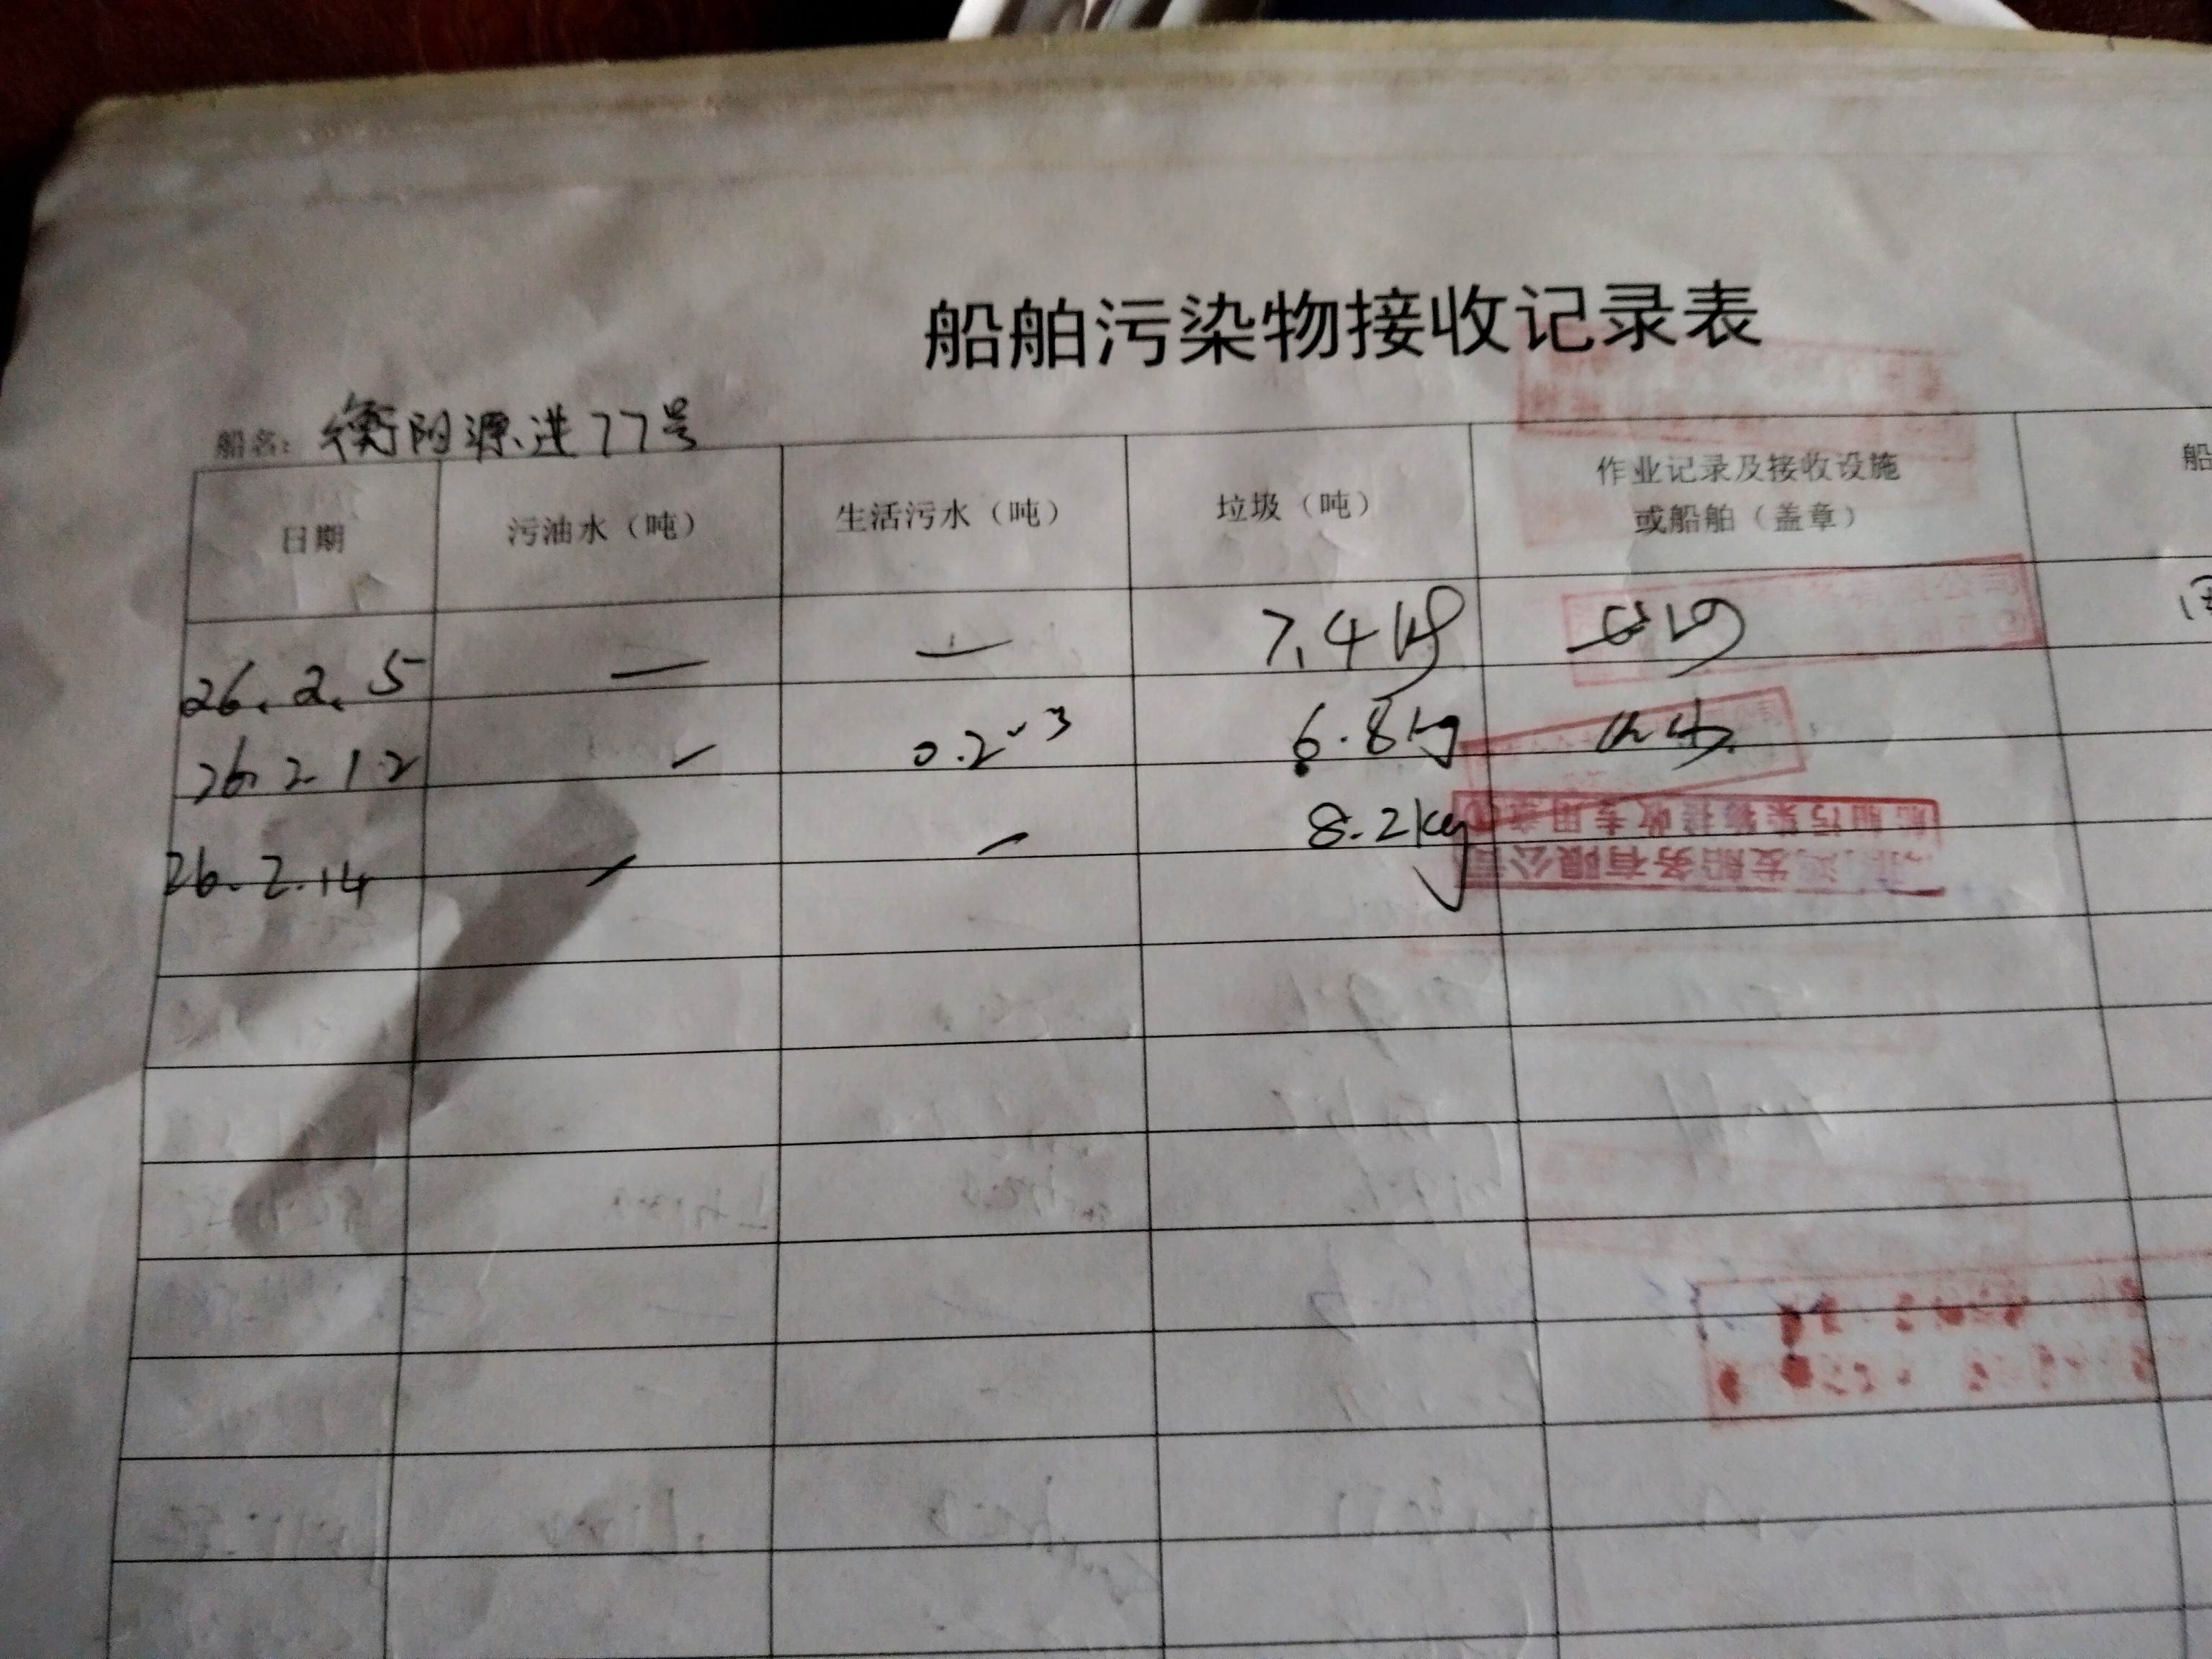 船舶污染物接收记录表
船名: 衡阳源进77号
日期 污油水（吨） 生活污水（吨） 垃圾（吨） 作业记录及接收设施 船
或船舶（盖章）
26.2.5 — — 7.4kg
26.2.12 — 0.2m3 6.8kg
26.2.14 — — 8.2kg
船舶污染物接收专用章
发船务有限公司